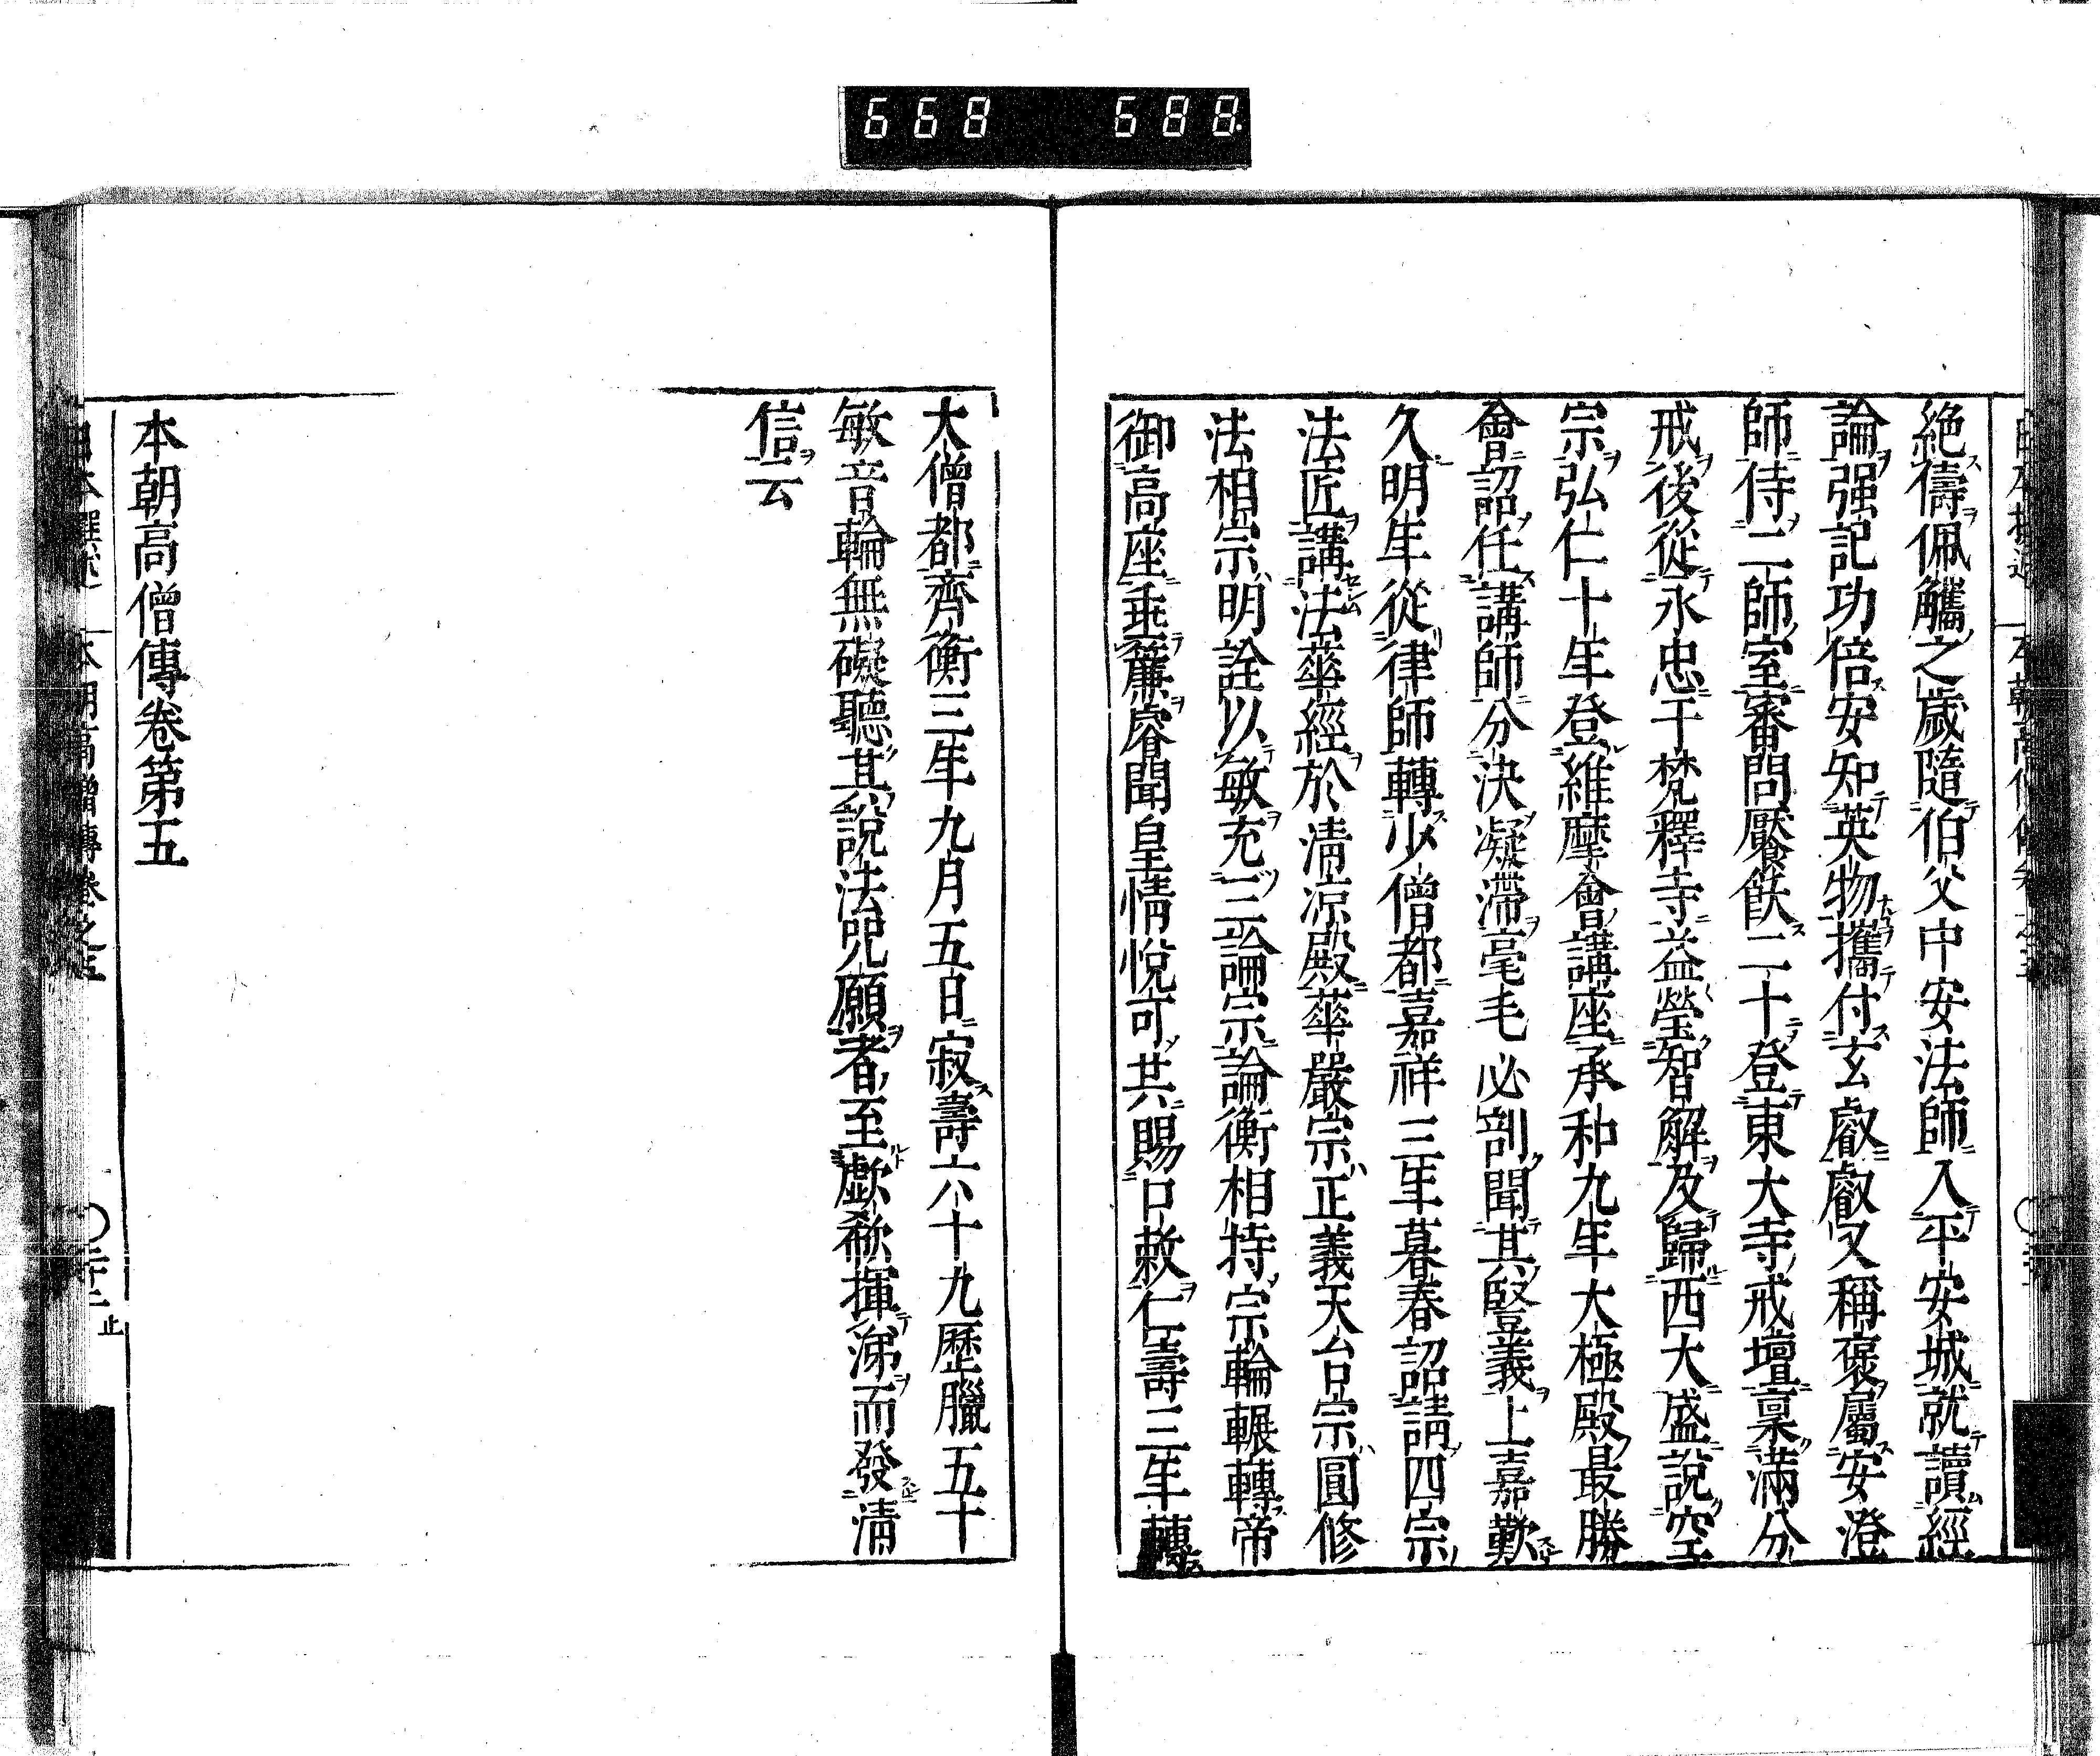 668 688
絶儔佩觿之歲隨伯父中安法師入平安城就讀經
論强記功倍安知英物攜付玄叡叡又稱褒屬安澄
師侍二師室審問饜飫二十登東大寺戒壇稟滿分
戒後從永忠于梵釋寺益瑩智解及歸西大盛說空
宗弘仁十年登維摩會講座承和九年大極殿最勝
會詔任講師分決凝滯毫毛必剖聞其竪義上嘉歎
久明年從律師轉少僧都嘉祥三年暮春詔請四宗
法匠講法華經於清凉殿華嚴宗正義天台宗圓修
法相宗明詮以敏充三論宗論衡相持宗輪輾轉帝
御高座垂簾睿聞皇情悅可共賜口敕仁壽三年轉
大僧都齊衡三年九月五日寂壽六十九歷臘五十
敏音輪無礙聽其說法咒願者至歔欷揮涕而發淸
信云
本朝高僧傳卷第五
日本撰述 本朝高僧傳卷之五